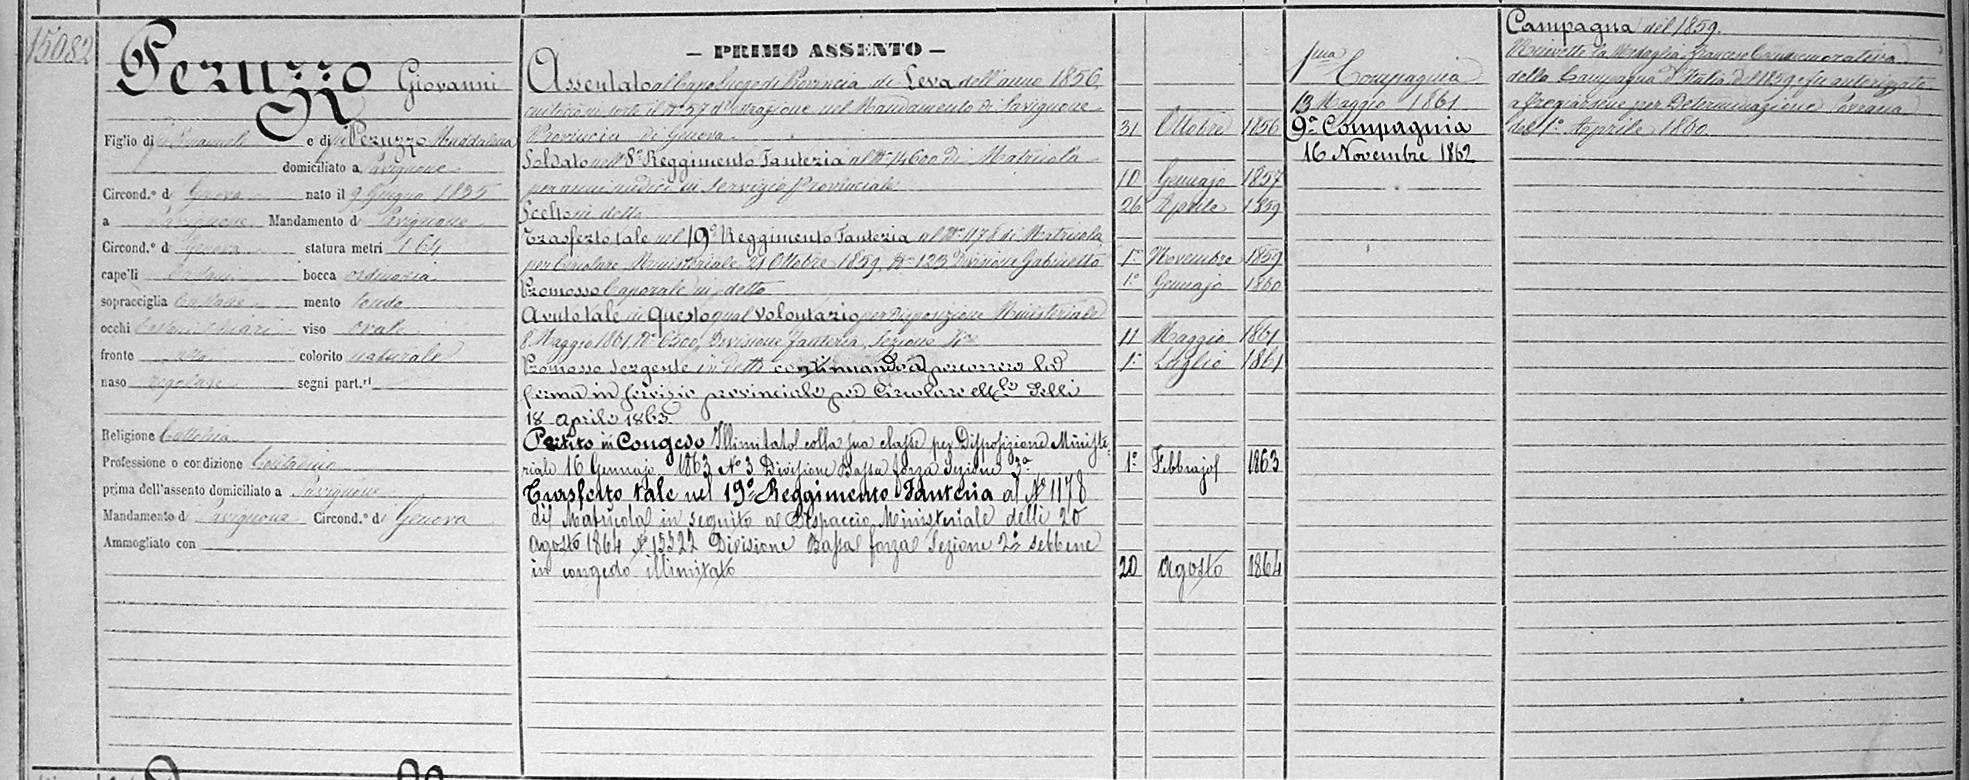 15082
Peruzzo Giovanni
Figlio di fu Emanuele e di fu Peruzzo Maddalena
domiciliato a Savignone
Circond.º di Genova nato il 9 Giugno 1835
a Savignone Mandamento di Savignone
Circond.º di Genova statura metri 1.64
capelli castani bocca ordinaria
sopracciglia castane mento tondo
occhi castani chiari viso ovale
fronte alta colorito naturale
naso regolare segni part.ri
Religione Cattolica
Professione o condizione Contadino
prima dell'assento domiciliato a Savignone
Mandamento di Savignone Circond.º di Genova
Ammogliato con
— PRIMO ASSENTO —
Assentato al Capo luogo di Provincia di Leva dell'anno 1856,
cui toccò in sorte il Nº 57 d'estrazione nel Mandamento di Savignone
Provincia di Genova 31 Ottobre 1856
Soldato nell' 8º Reggimento Fanteria al Nº 14600 di Matricola
per anni undici in Servizio Provinciale 10 Gennajo 1857
Scelto in detto 26 Aprile 1859
Trasferto tale nel 19º Reggimento Fanteria al Nº 1178 di Matricola
per Circolare Ministeriale 21 Ottobre 1859 Nº 123 Divisione Gabinetto 1º Novembre 1859
Promosso Caporale in detto 1º Gennajo 1860
Avuto tale in Questo qual Volontario per disposizione Ministeriale
8 Maggio 1861 Nº 6500, Divisione Fanteria, Sezione 11 Maggio 1861
Promosso Sergente in detto continuando a percorrere la 1º Luglio 1861
ferma in servizio provinciale per Circolare delli
18 Aprile 1863.
Partito in Congedo Illimitato colla sua classe per Disposizione Ministe-
riale 16 Gennajo 1863 Nº 3 Divisione Bassa forza Sezione 3ª 1º Febbrajo 1863
Trasferto tale nel 19º Reggimento Fanteria al Nº 1178
di Matricola in seguito al Dispaccio Ministeriale delli 20
Agosto 1864 Nº 15322 Divisione Bassa forza Sezione 2ª sebbene
in congedo illimitato 20 Agosto 1864
1ma Compagnia
13 Maggio 1861
9ª Compagnia
16 Novembre 1862
Campagna del 1859.
Ricevette la Medaglia Francese Commemorativa
della Campagna d'Italia del 1859 e fu autorizzato
a fregiarsene per Determinazione Sovrana
del 1º Aprile 1860